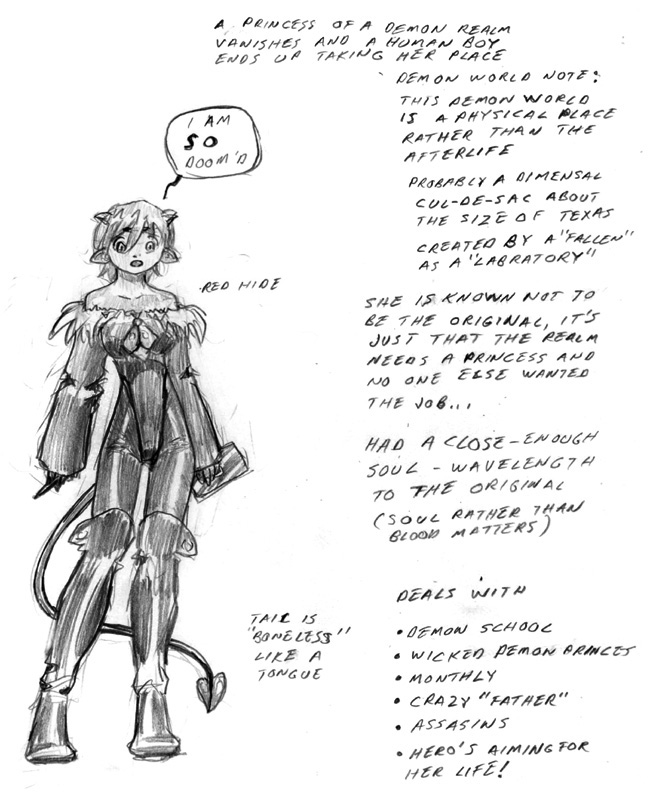 A PRINCESS OF A DEMON REALM
VANISHES AND A HUMAN BOY
ENDS UP TAKING HER PLACE
DEMON WORLD NOTE:
THIS DEMON WORLD
IS A PHYSICAL PLACE
RATHER THAN THE
AFTERLIFE
PROBABLY A DIMENSAL
CUL-DE-SAC ABOUT
THE SIZE OF TEXAS
CREATED BY A "FALLEN"
AS A "LABRATORY"
I AM
SO
DOOM'D
RED HIDE
SHE IS KNOWN NOT TO
BE THE ORIGINAL, IT'S
JUST THAT THE REALM
NEEDS A PRINCESS AND
NO ONE ELSE WANTED
THE JOB...
HAD A CLOSE-ENOUGH
SOUL-WAVELENGTH
TO THE ORIGINAL
(SOUL RATHER THAN
BLOOD MATTERS)
TAIL IS
"BONELESS"
LIKE A
TONGUE
DEALS WITH
• DEMON SCHOOL
• WICKED DEMON PRINCES
• MONTHLY
• CRAZY "FATHER"
• ASSASINS
• HERO'S AIMING FOR
HER LIFE!